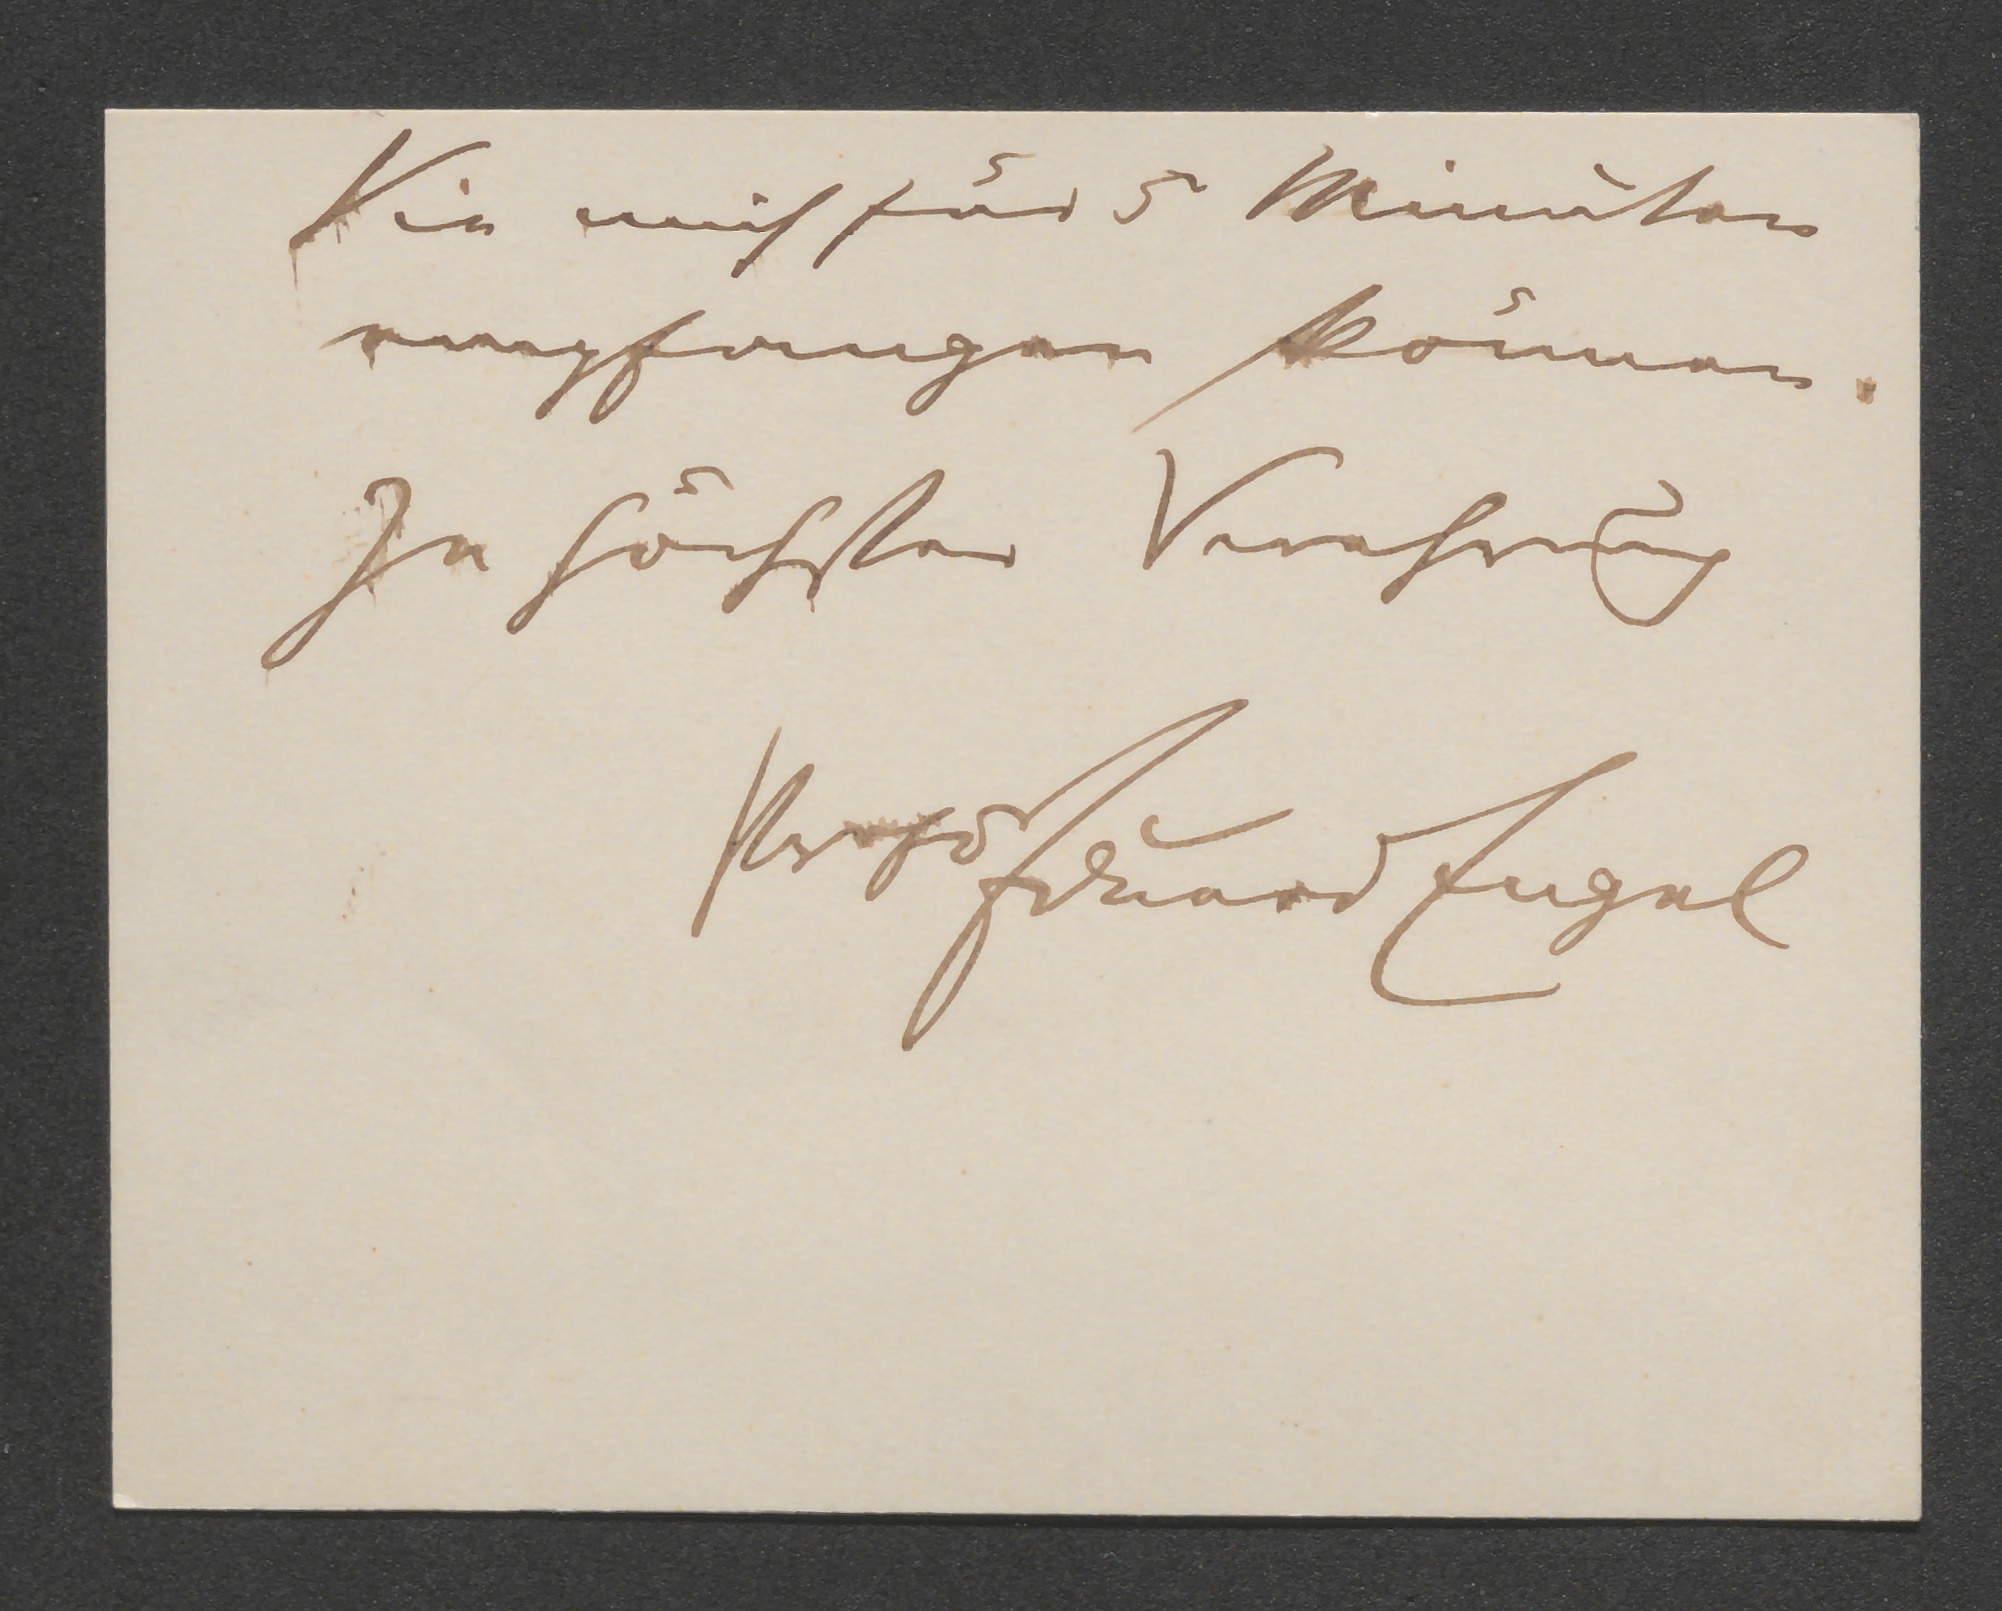 Sie mich für 5 Minuten
empfangen können.
In höchster Verehrung
Prof. Eduard Engel